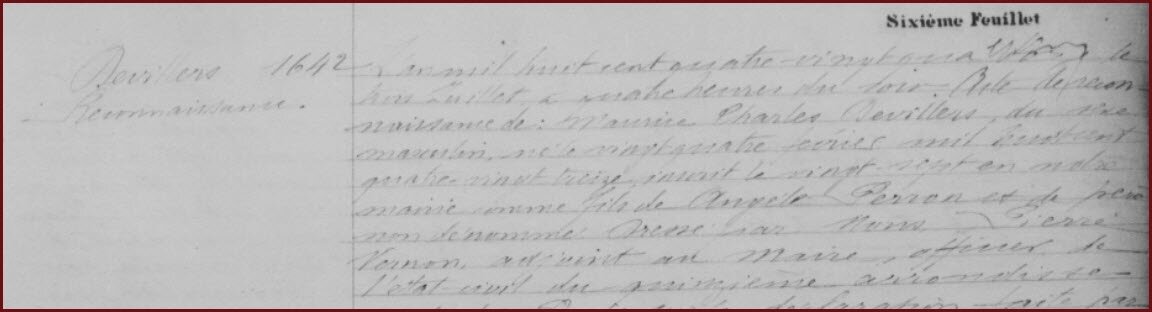 Sixième Feuillet
Devillers 1642
Reconnaissance.
L'an mil huit cent quatre-vingt le
Juillet, à quatre heures du soir. Acte de recon
naissance de: Maurice Charles Devillers, du sexe
masculin, né le vingt quatre février mil huit cent
quatre-vingt treize, inscrit le vingt-sept en notre
mairie comme fils de Angèle Perron et de père
non dénommé. Dressé par Nous, Pierre
Vernon, adjoint au Maire, officier de
l'état civil du quinzième arrondisse
déclaration faite par